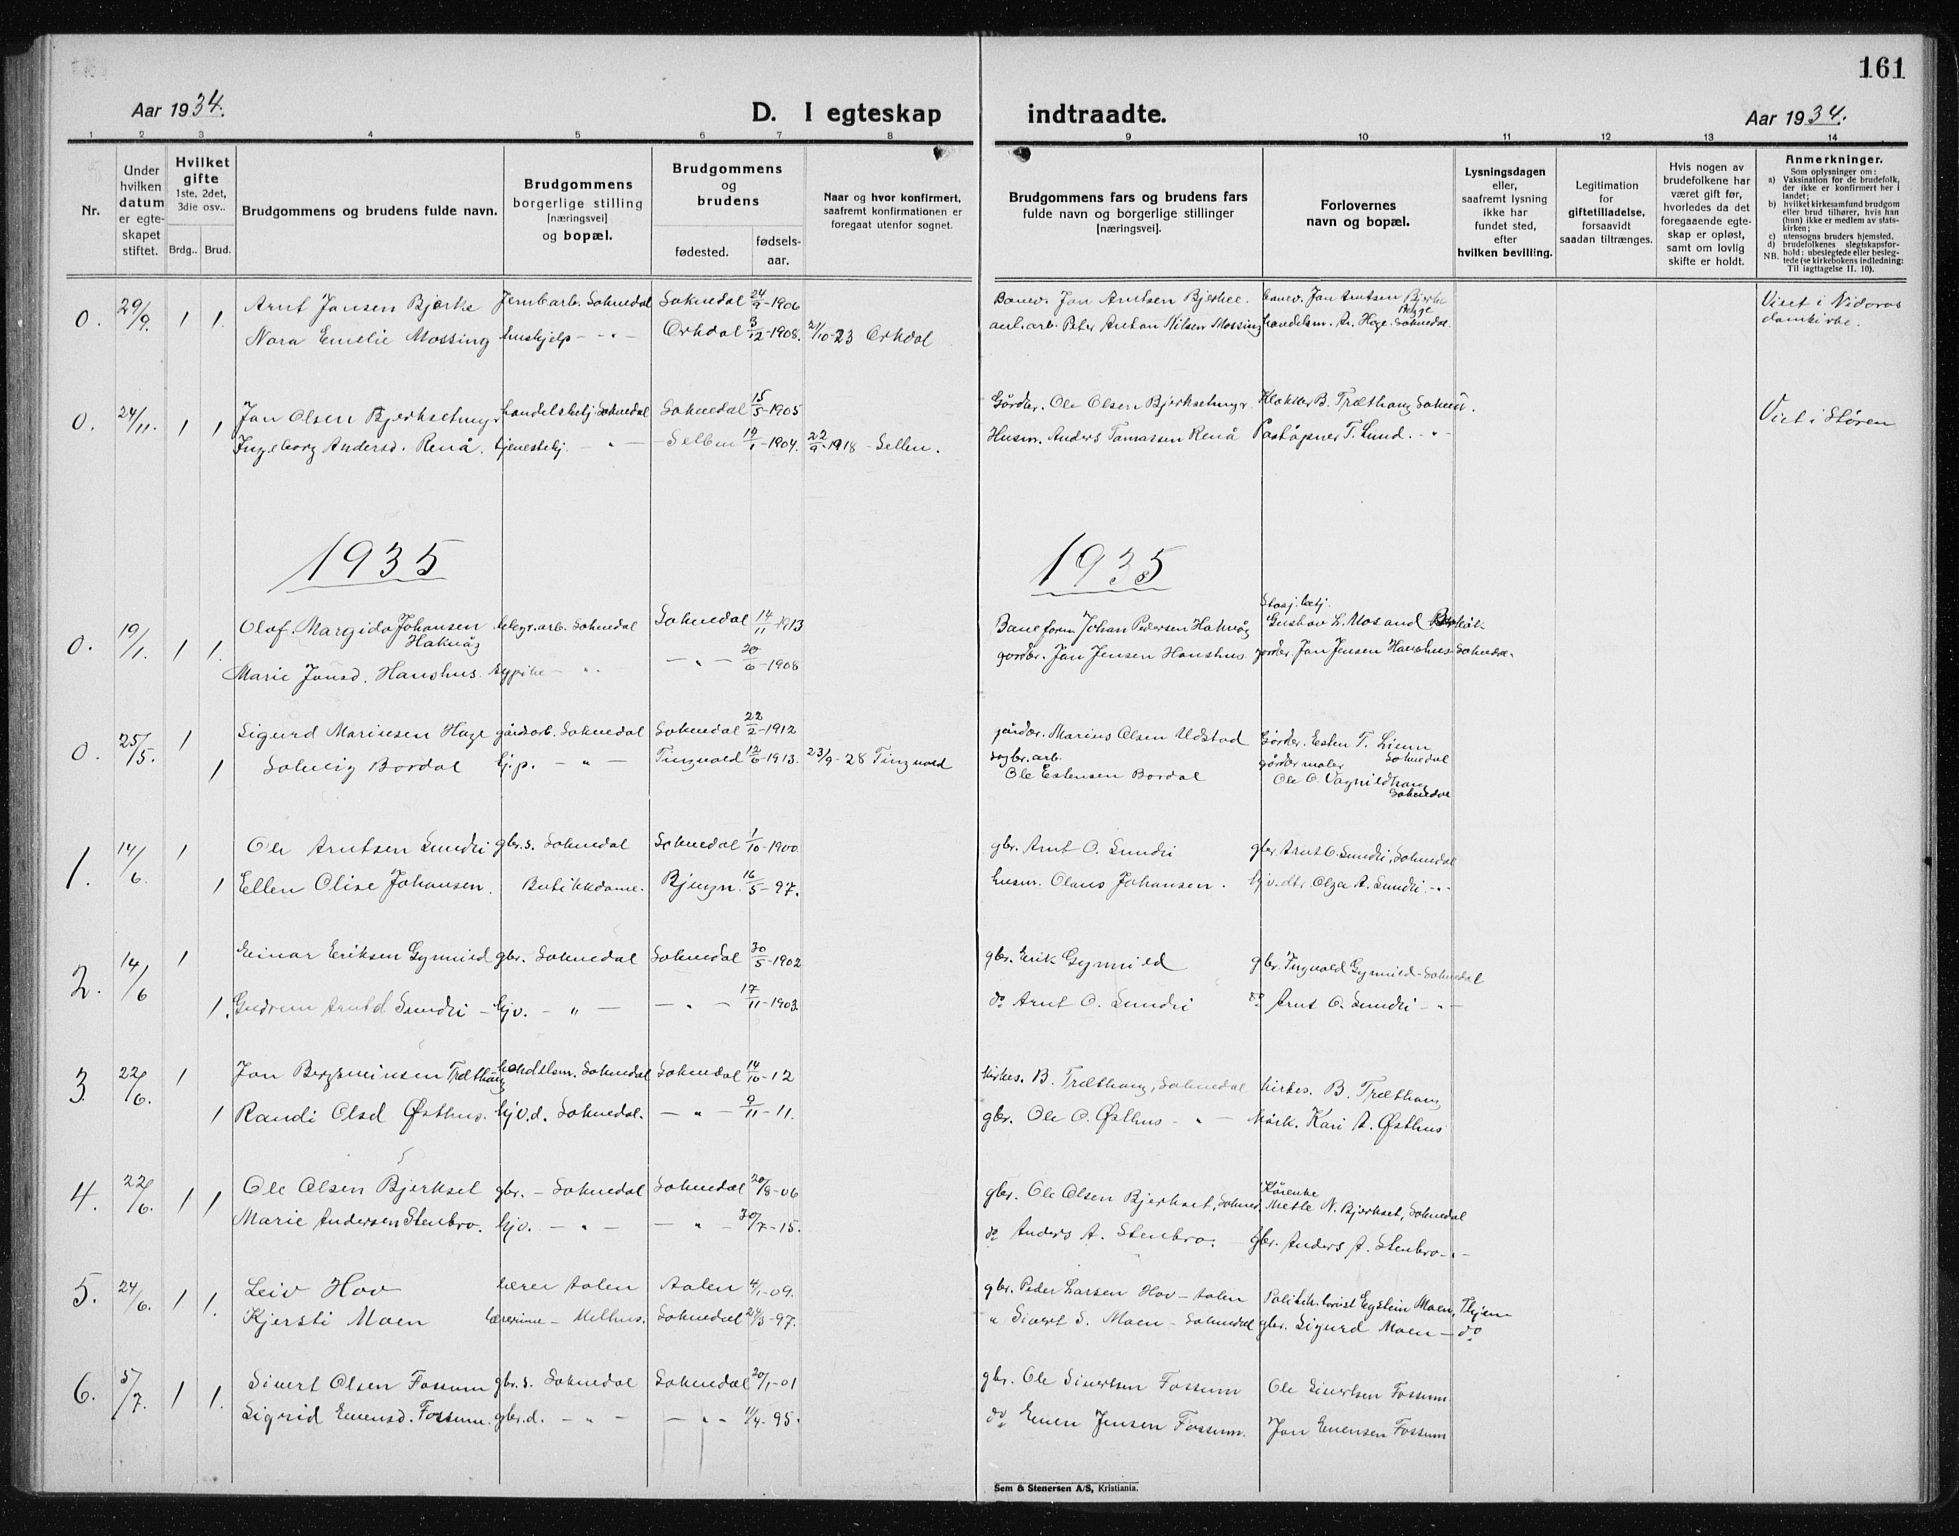 161
Aar 1934.
D. I egteskap indtraadte.
Aar 1934.
1 2 3 4 5 6 7 8 9 10 11 12 13 14
Nr.
Under hvilken datum er egte-skapet stiftet.
Hvilket gifte 1ste, 2det, 3die osv..
Brdg.. Brud.
Brudgommens og brudens fulde navn.
Brudgommens borgerlige stilling [næringsvei] og bopæl.
Brudgommens og brudens
fødested. fødsels-aar.
Naar og hvor konfirmert, saafremt konfirmationen er foregaat utenfor sognet.
Brudgommens fars og brudens fars fulde navn og borgerlige stillinger [næringsvei].
Forlovernes navn og bopæl.
Lysningsdagen eller, saafremt lysning ikke har fundet sted, efter hvilken bevilling.
Legitimation for giftetilladelse, forsaavidt saadan tiltrænges.
Hvis nogen av brudefolkene har været gift før, hvorledes da det foregaaende egte-skap er opløst, samt om lovlig skifte er holdt.
Anmerkninger.
Som oplysninger om:
a) Vaksination for de brudefolk, der ikke er konfirmert her i landet;
b) hvilket kirkesamfund brudgom eller brud tilhører, hvis han (hun) ikke er medlem av stats-kirken;
c) utensogns bruders hjemsted.
d) brudefolkenes slegtskapsfor-hold: ubeslegtede eller besleg-tede (se kirkebokens indledning:
NB. Til iagttagelse II. 10).
0. 29/9. 1 1. Arnt Jonsen Bjerke Jernb.arb. Soknedal Soknedal 24/9-1906 Banev. Jon Arntsen Bjerke banev. Jon Arntsen Bjerke Viet i Nidaros domkirke.
Nora Emelie Mossing hushjelp - " - Orkdal 3/12-1908. 21/10-23 Orkdal anl.arb. Peter Anton Nilsen Mossing handelsm. A. Hage Soknedal
0. 24/11. 1 1 Jon Olsen Bjerksetmyr handelsbetj. Soknedal Soknedal 15/5-1905 Gårdbr. Ole Olsen Bjerksetmyr. Klokker B. Træthaug Viet i Støren
Ingeborg Andersd. Renå. tjenestebj. - " - Selbu 19/1-1904. 22/9-1918 - Husm. Anders Tomassen Renå Poståpner T. Lund. - " -
1935
1935
0. 19/1. 1 1. Olaf Margido Johansen Haknåg Soknedal Soknedal 14/11-1913 Baneform Johan Pedersen Haknåg Stasj.betj. Gustav L. Mosand
Marie Jonsd. Hanshus. - " - - " - 20/6-1908 gårdbr. Jon Jensen Hanshus. gårdbr. Jon Jensen Hanshus - Soknedal
0. 25/5. 1 Sigurd Mariusen Hage gårdsarb. Soknedal Soknedal 22/2-1912 gårdbr. Marius Olsen Gårdbr. Esten T. Soknedal
1 Solveig Bordal hj.p. - " - Tingvold 12/6-1913. 23/9-28 Tingvold sagbr.arb. Ole Estensen Bordal Ole O. Vagnildhaug Soknedal
1. 14/6. 1 Ole Arntsen Sundli gbr.s. Soknedal Soknedal 1/10-1900 gbr. Arnt O. Sundli gbr. Arnt O. Sundli, Soknedal
1 Ellen Olise Johansen. Butikkdame. Bjugn. 16/5-97. husm. Olaus Johansen. Olga A. Sundli - " -
2. 14/6 1 Einar Eriksen Gynnild gbr. Soknedal Soknedal 30/5-1902 gbr. Erik Gynnild gbr. Ingvald Gynnild - Soknedal
1. Gudrun Arntd Sundli - hjv. - " - - " - 17/11-1903 do Arnt O. Sundli do Arnt O. Sundli - " -
3. 22/6. 1 Jon Bergsveinsen Træthaug handelsm. Soknedal Soknedal 14/10-12 kirkes. B. Træthaug, Soknedal kirkes. B. Træthaug
1 Randi Olsd Østhus. hjv.d. Soknedal. - " - 9/11-11. gbr. Ole O. Østhus - " - Kari A. Østhus
4. 22/6. 1 1 Ole Olsen Bjerkset gbr. - Soknedal Soknedal 20/8-06 gbr. Ole Olsen Bjerkset, Sokned. Mette N. Bjerkset, Soknedal
Marie Andersen Stenbro. hjv. - " - - " - 30/7-15. do Anders A. Stenbro. gbr. Anders A. Stenbro - " -
5. 24/6. 1 1. Leiv Hov lærer Aalen Aalen 4/1-09. gbr. Peder Larsen Hov - Aalen Eystein Moen,
Kjersti Moen lærerinne - Melhus. Soknedal 24/3-97. " Sivert S. Moen - Soknedal gbr. Sigurd Moen - do
6. 5/7. 1 1. Sivert Olsen Fossum gbr.s. Soknedal Soknedal 20/1-01 gbr. Ole Sivertsen Fossum Ole Sivertsen Fossum
Sigrid Evensd. Fossum. gbr.d. - " - - " - 11/4-95. do Even Jensen Fossum. Jon Evensen Fossum
Sem & Stenersen A/S, Kristiania.